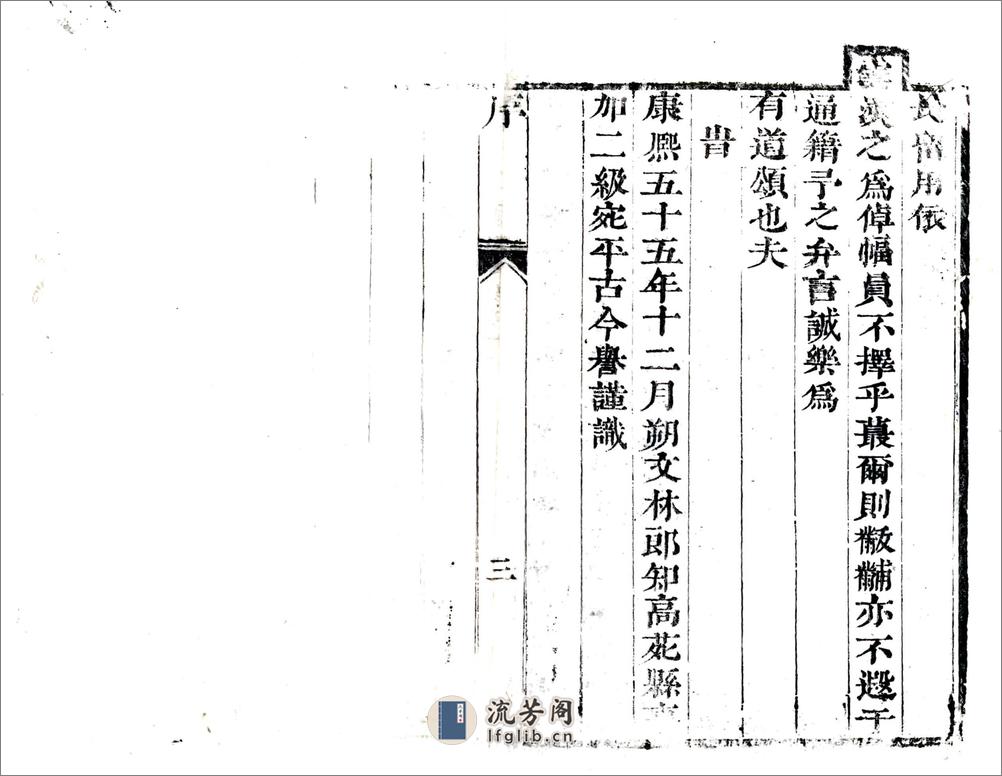 用依
漢之爲倬幅員不擇乎蕞爾則黻黼亦不遐于
通籍予之弁言誠樂爲
有道頌也夫
旹
康熙五十五年十二月朔文林郎知高苑縣事
加二級宛平古今譽謹識
序
三
流芳阁
lfglib.cn